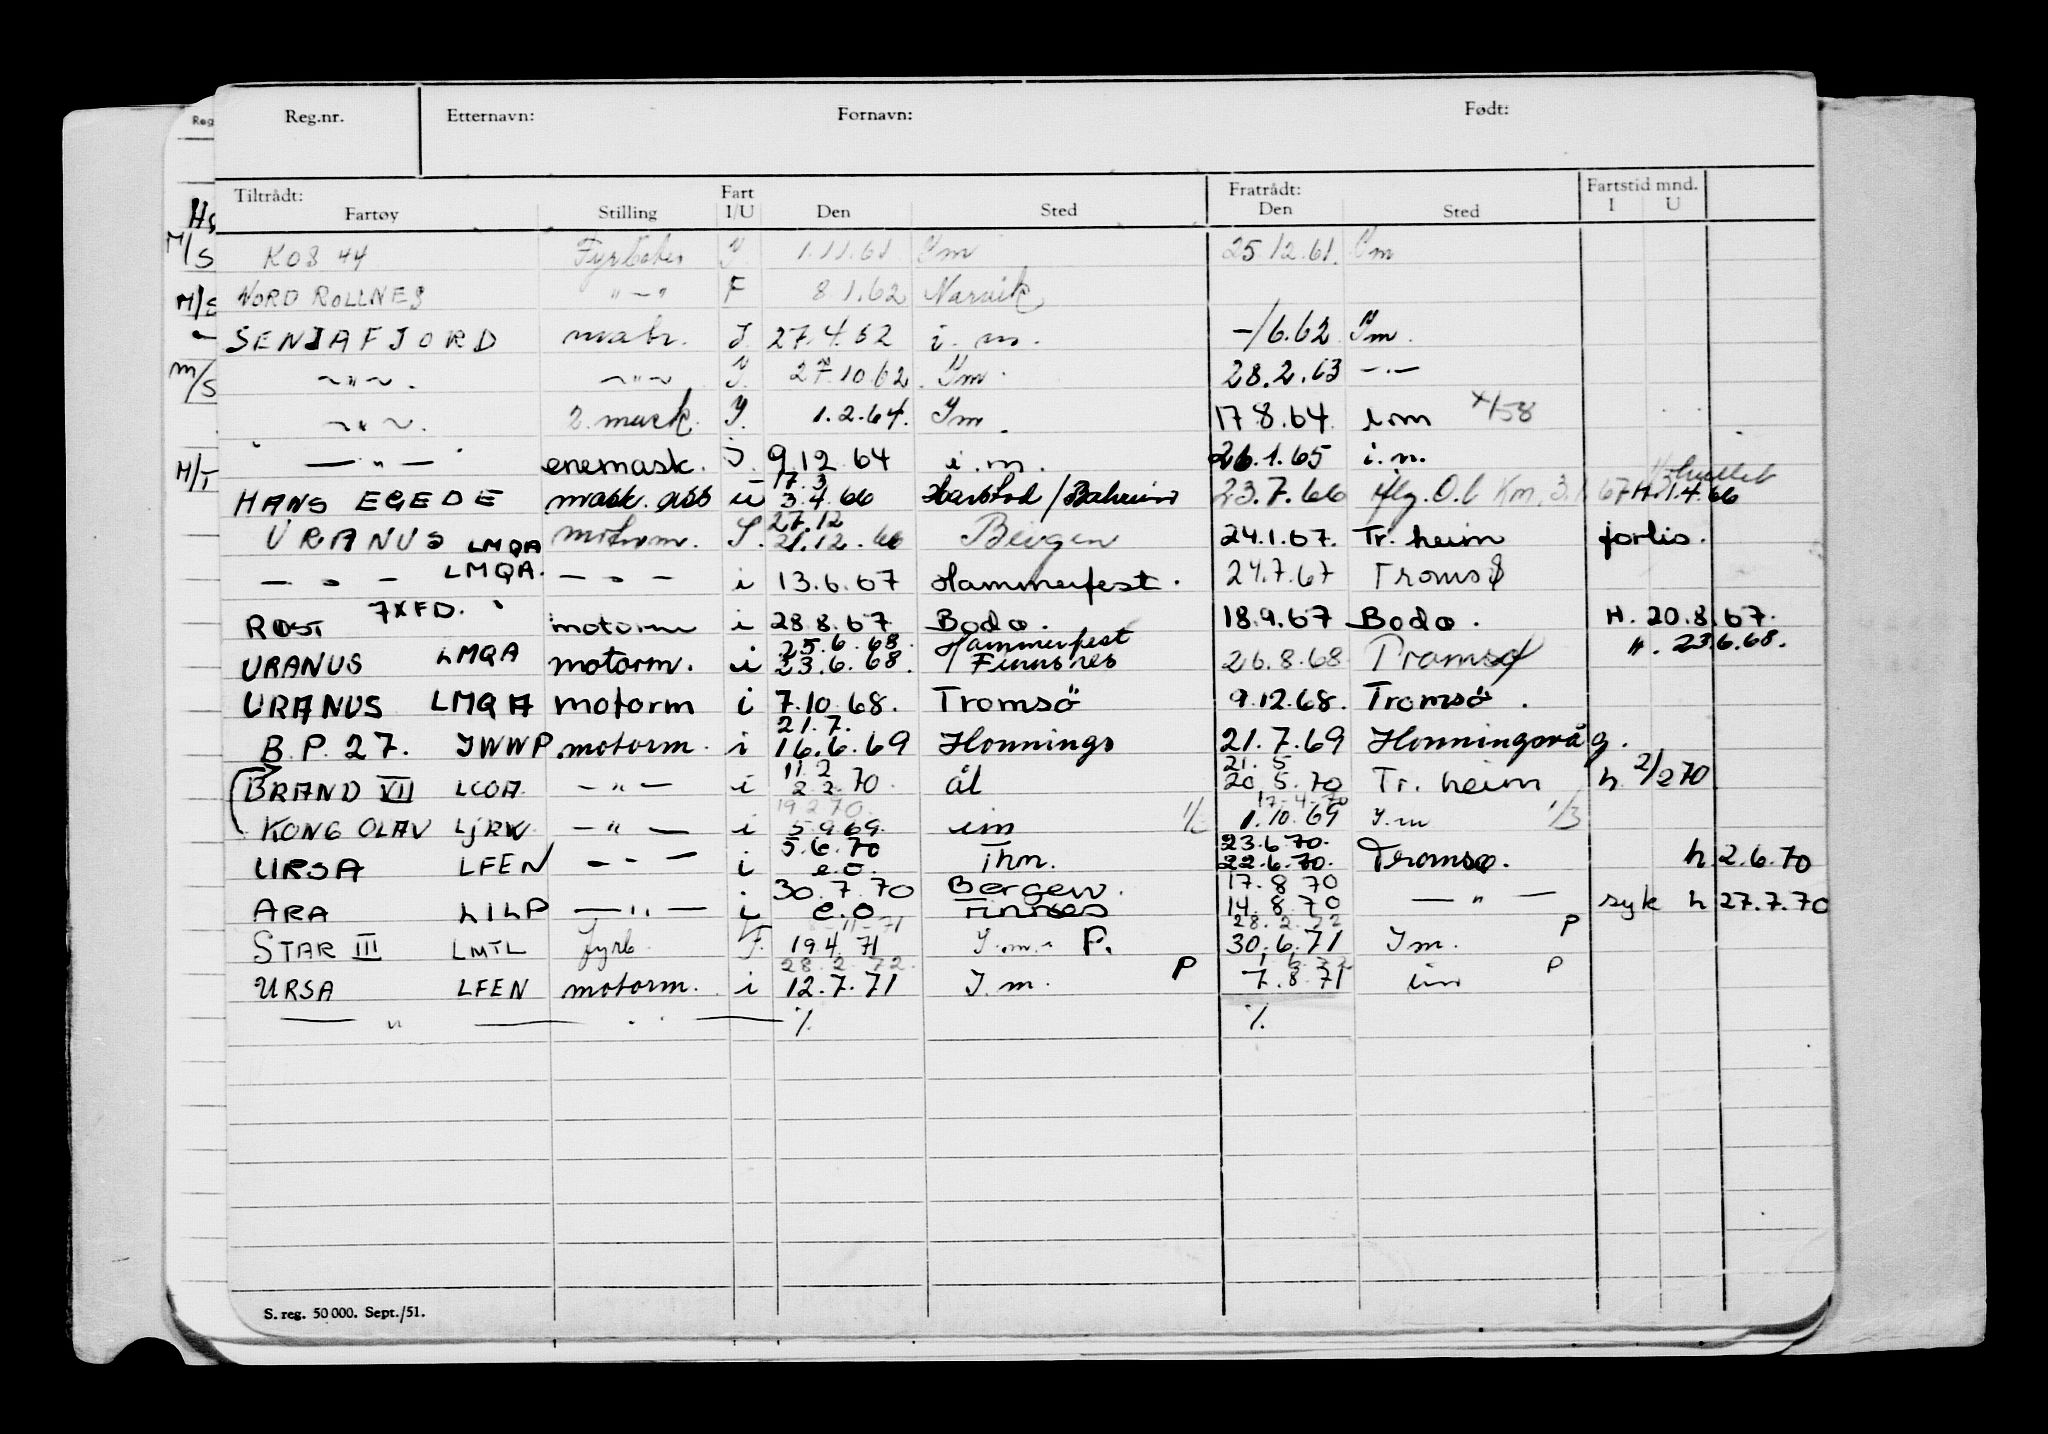 Reg.nr. Etternavn: Fornavn: Født:
Tiltrådt: Fart Fratrådt: Fartstid mnd.
Fartøy Stilling I/U Den Sted Den Sted I U
KOS 44 Fyrbøter I 1.11.61 Im 25.12.61. Im
NORD ROLLNES " — " F 8.1.62 Narvik
SENJAFJORD matr. I. 27.4.62 i. m. —/6.62 Im.
~ " ~ . ~ " ~ I. 27.10.62. Im. 28.2.63 — . —
~ " ~ . 2. mask. I. 1.2.64. Im. 17.8.64 i.m
— " — enemask. I. 9.12.64 i.m. 26.1.65 i.m.
17.3
HANS EGEDE mask. ass u 3.4.66 Harstad / 23.7.66 H. 31.4.66
27.12
URANUS LMQA motorm. I. 21.12.66 Bergen 24.1.67. Tr. heim forlis.
— " — LMQA. — " — i 13.6.67 Hammerfest. 24.7.67 Tromsø
RØST 7XFD. motorm i 28.8.67 Bodø. 18.9.67 Bodø. H. 20.8.67.
25.6.68. Hammerfest H. 23.6.68.
URANUS LMQA motorm. i 23.6.68. Finnsnes 26.8.68 Tromsø
URANUS LMQA motorm i 7.10.68. Tromsö 9.12.68. Tromsö.
21.7.
B.P. 27. JWWP. motorm. i 16.6.69 Honnings 21.7.69 Honningsvåg.
11.2 21.5
BRAND VII LCOA — " — i 2.2.70 ål 20.5.70 Tr. heim h 2/2 70
19.2.70. 17-4-70
KONG OLAV LJRW — " — i 5.9.69. im 1.10.69 I.m 1/3
5.6.70 23.6.70.
URSA LFEN — " — i e.o. Thm. 22.6.70. Tromsø. h 2.6.70
30.7.70 Bergen. 17.8.70
ARA LILP — " — i e.o Finnes 14.8.70 — " — syk h 27.7.70
28.2.72
STAR III LMTL fyrb. F. 19.4.71 I.m. P. 30.6.71 Im. P
28.2.72.
URSA LFEN motorm. i 12.7.71 I.m. P 7.8.71 im P
— " — — ٪. ٪.
S. reg. 50 000. Sept./51.
Reg
M/S
M/S
M/T